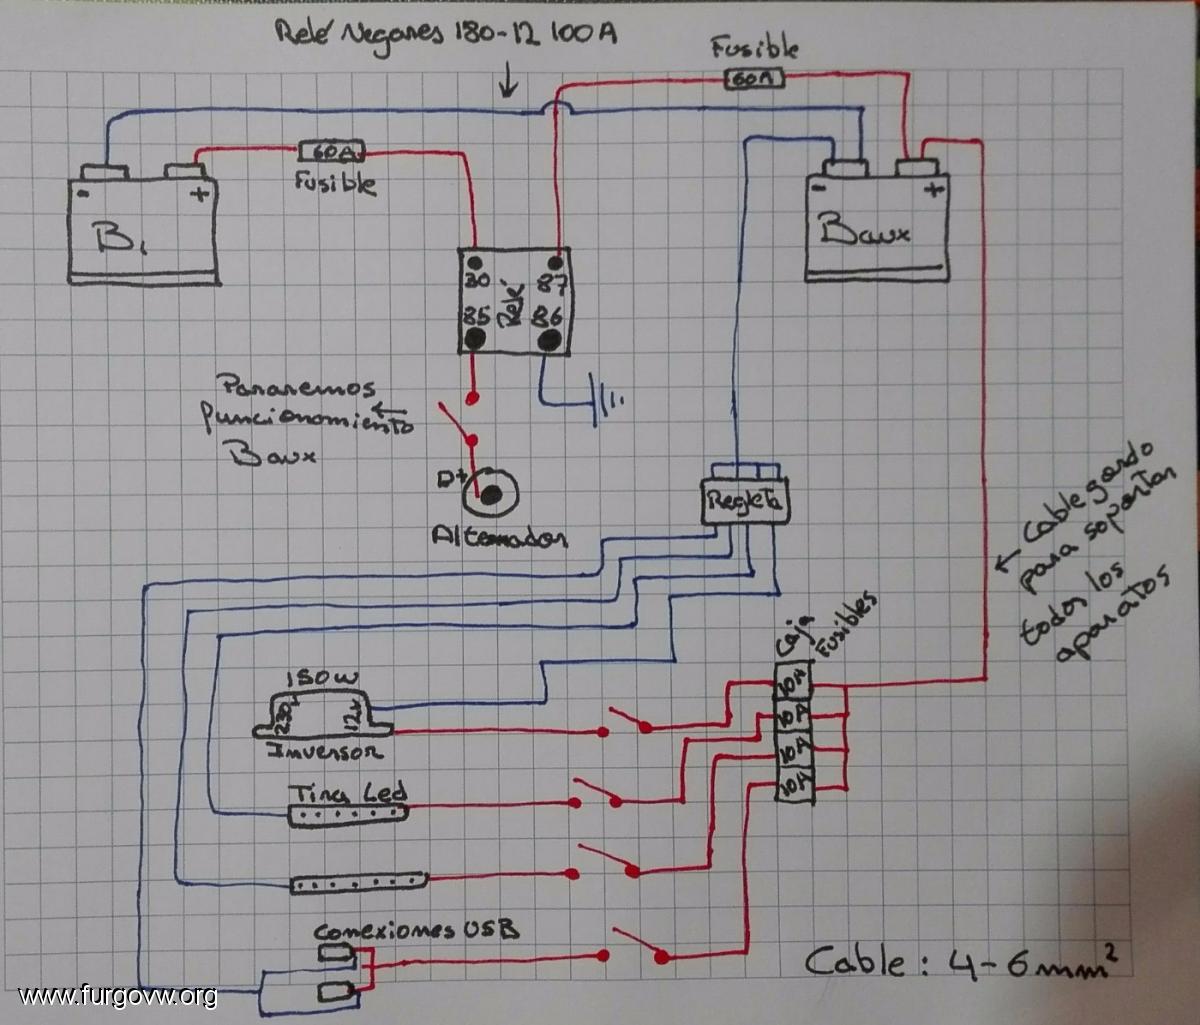 Relé Neganes 180-12 100A
Fusible
60A
60A
Fusible
- +
B1
- +
Baux
30 87
Relé
85 86
Pararemos
funcionamiento
Baux
D+
Alternador
Regleta
Cable gordo
para soportar
todos los
aparatos
Caja
Fusibles
10A
10A
10A
10A
150w
230v 12v
Inversor
Tira Led
Conexiones USB
Cable: 4-6mm²
www.furgovw.org